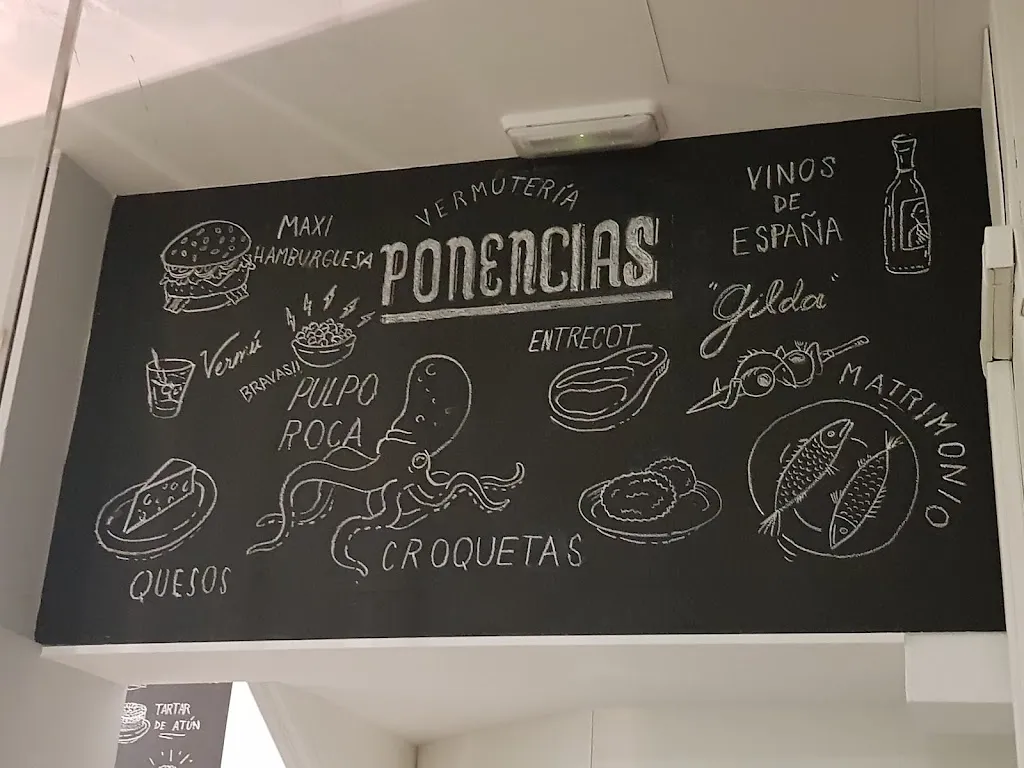 VERMUTERÍA
PONENCIAS
MAXI
HAMBURGUESA
VINOS
DE
ESPAÑA
"Gilda"
Vermú
BRAVAS!!
ENTRECOT
PULPO
ROCA
MATRIMONIO
CROQUETAS
QUESOS
TARTAR
DE ATÚN